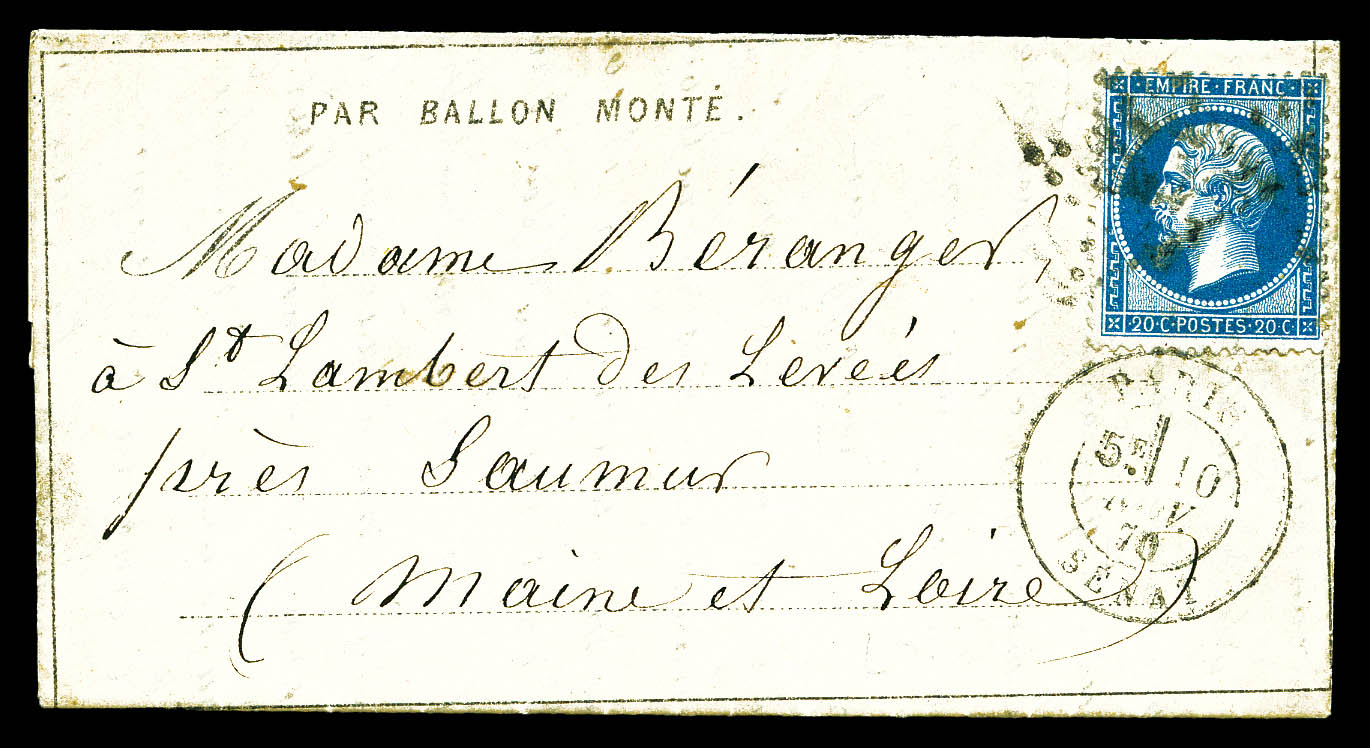 PAR BALLON MONTÉ.
EMPIRE · FRANC
20 · C · POSTES · 20 · C
Madame Béranger,
à St Lambert des Levées
près Saumur
(Maine et Loire)
PARIS
5E 10
NOV.
70
(SENAT)